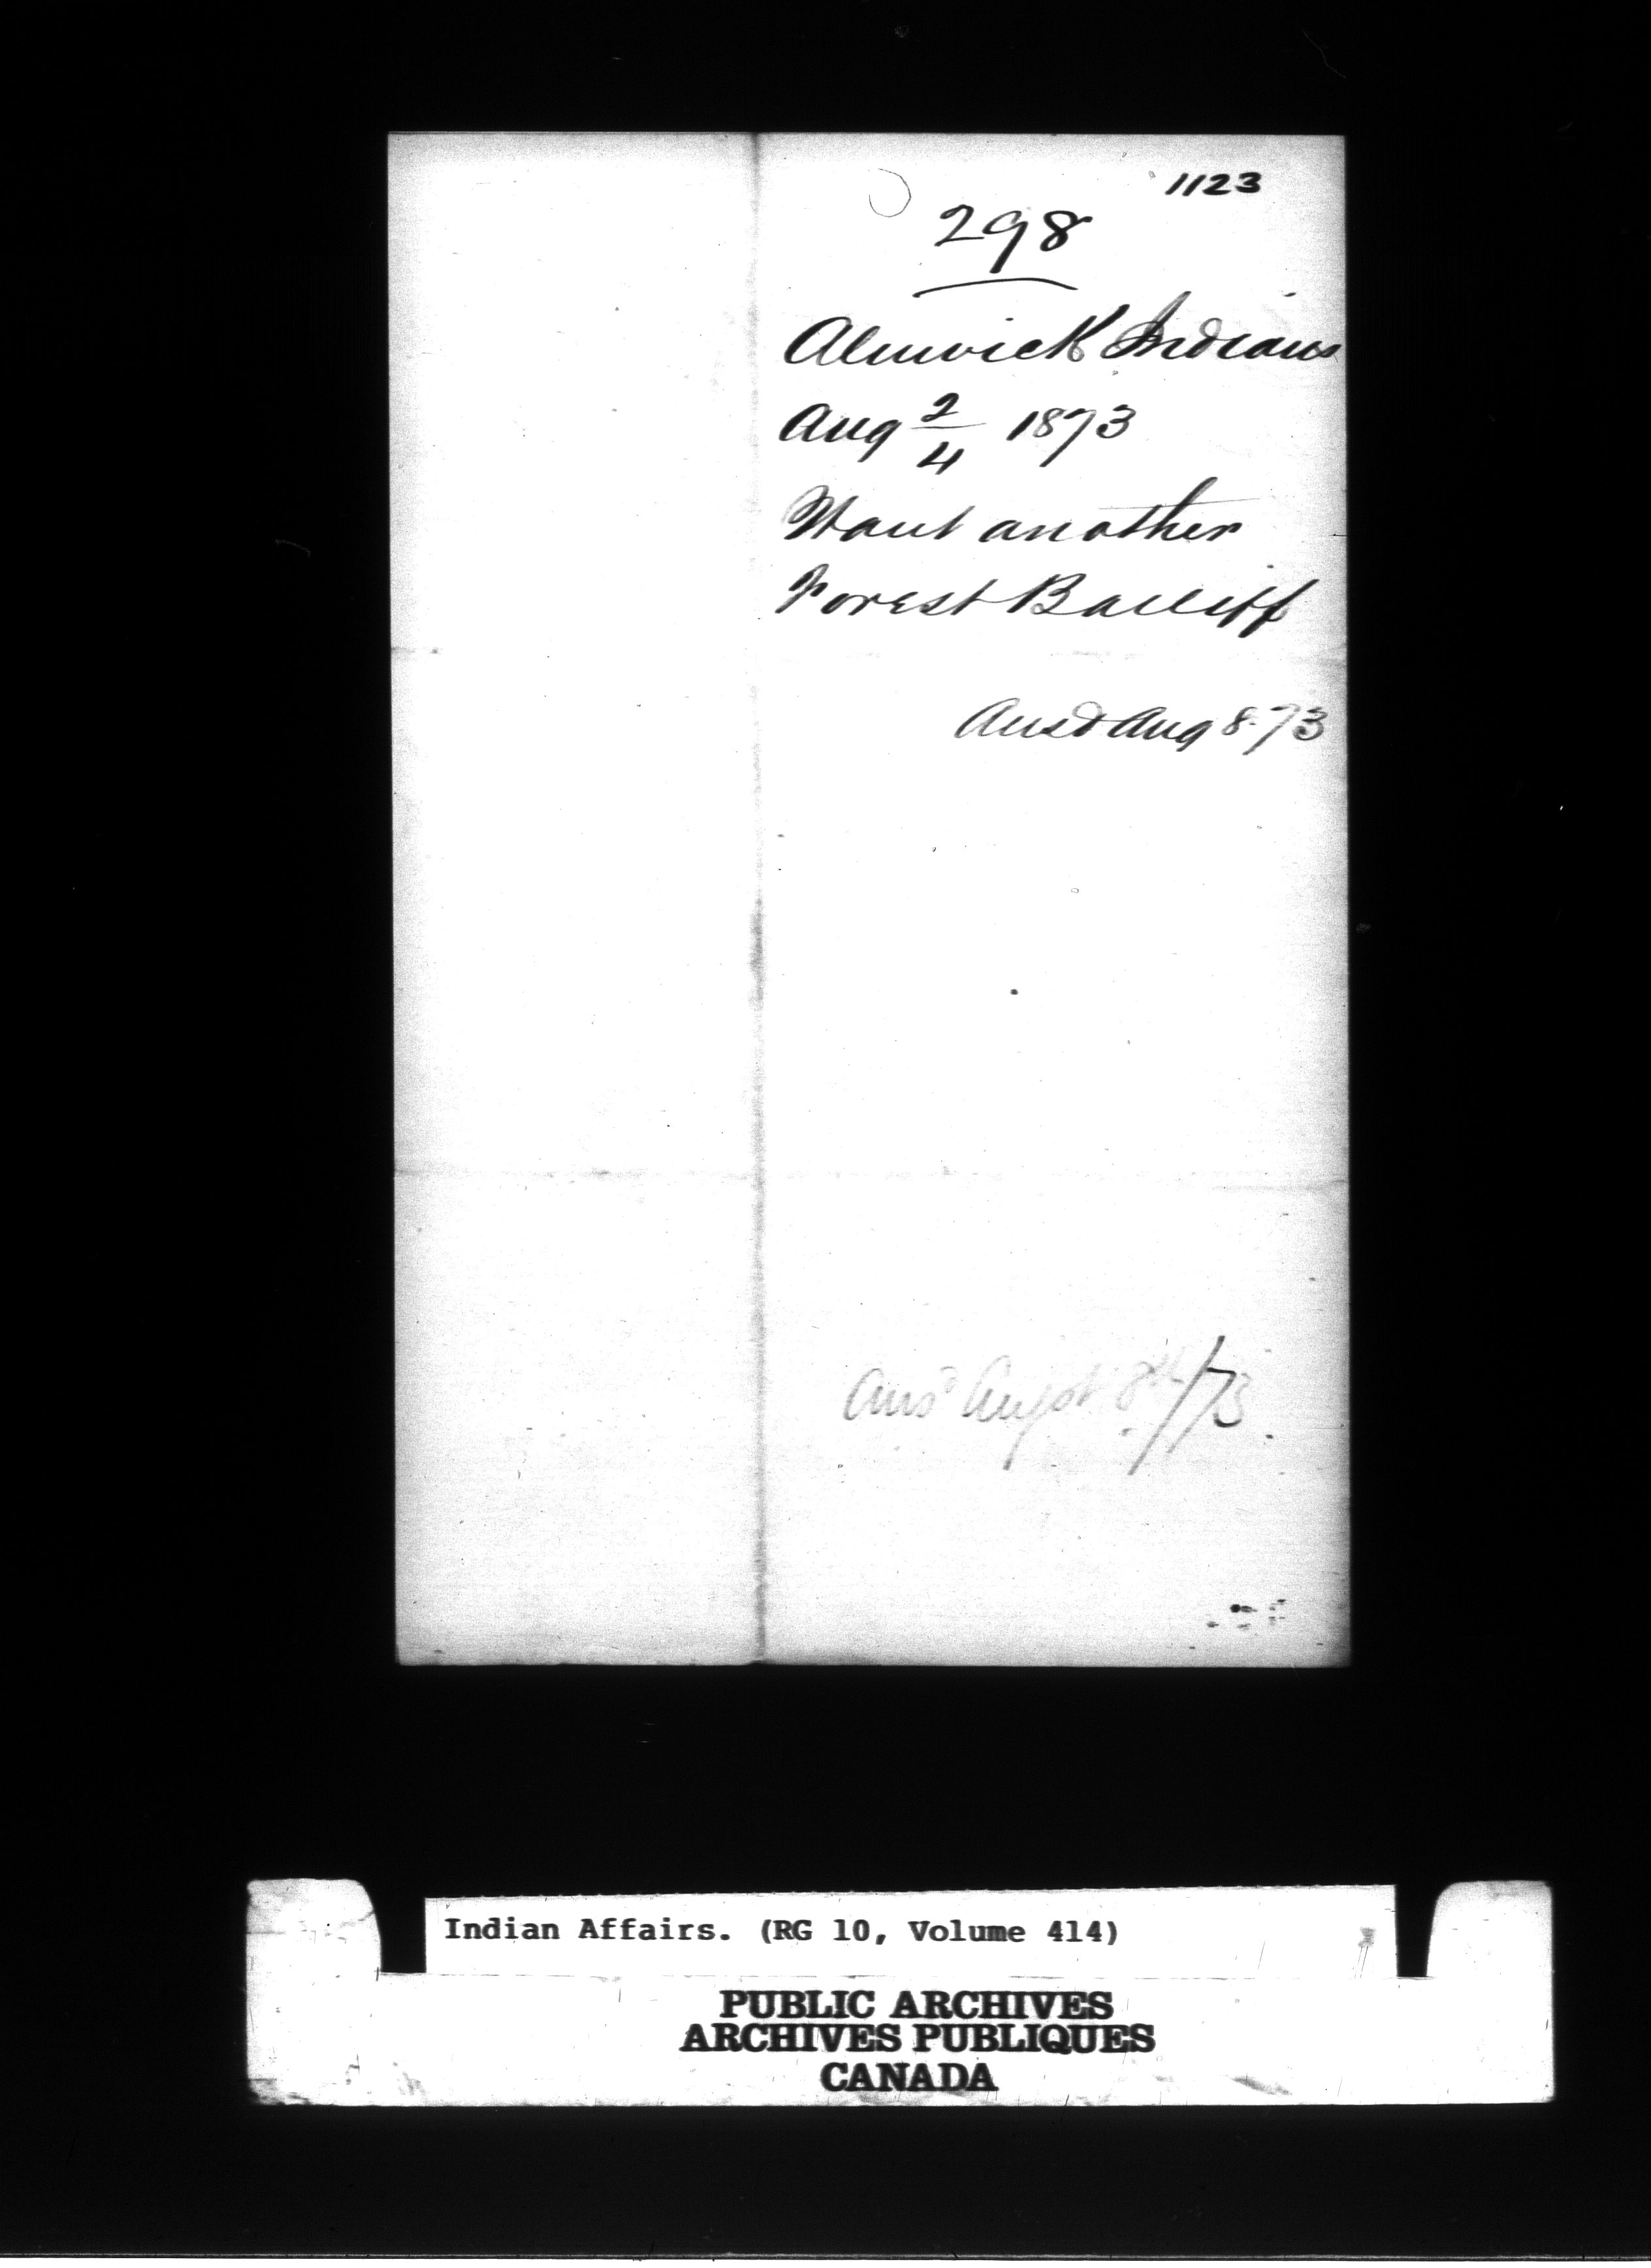 1123
298
Alnwick Indians
Aug 2/4 1873
Want another
Forest Bailiff
Ansd Aug 8. 73
Ansd Augst 8th/73
Indian Affairs. (RG 10, Volume 414)
PUBLIC ARCHIVES
ARCHIVES PUBLIQUES
CANADA